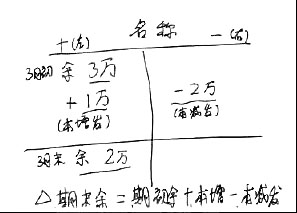 十(左) 名称 一(右)
期初余 3万
+1万 -2万
(本增发) (本减发)
期末余 2万
△期末余=期初余+本增-本减发